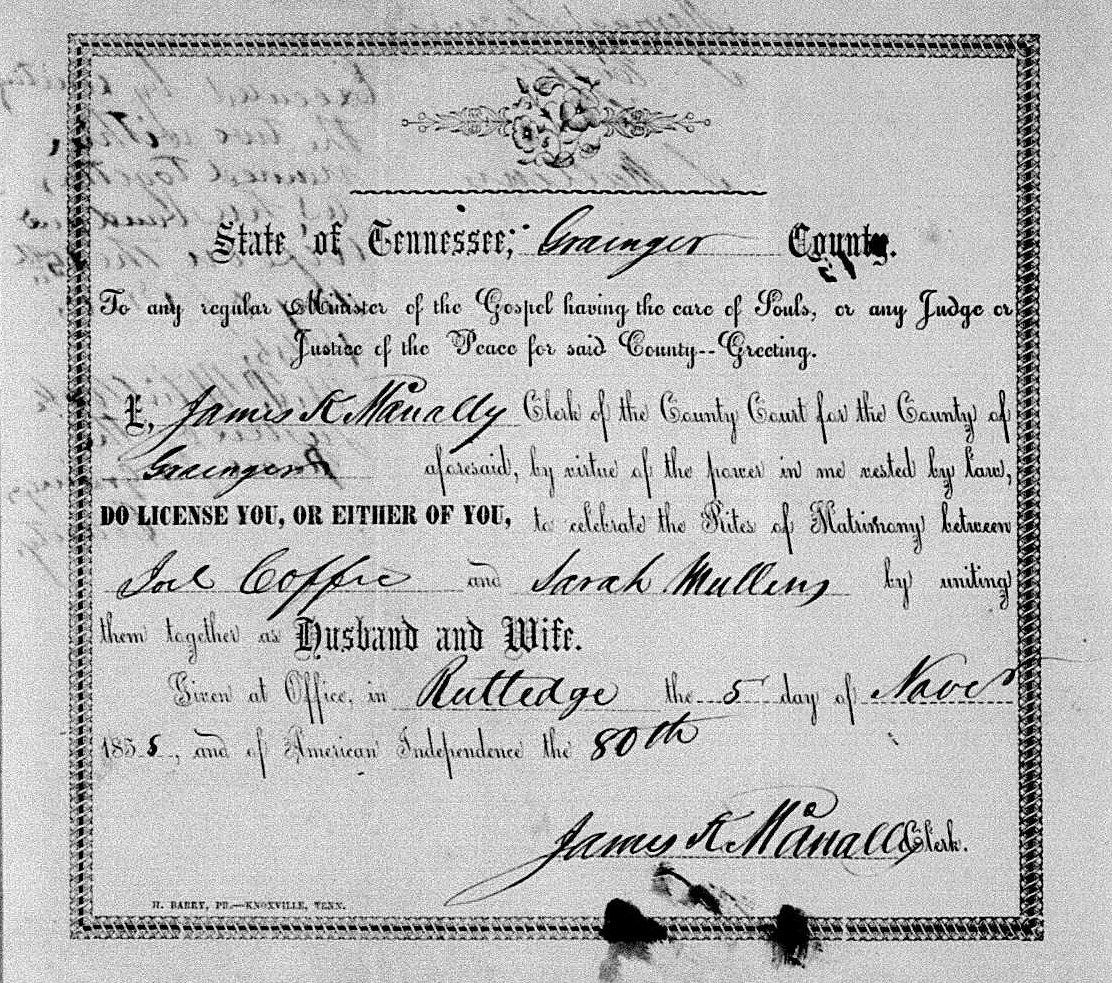 State of Tennessee, Grainger County.
To any regular Minister of the Gospel having the care of Souls, or any Judge or
Justice of the Peace for said County--Greeting.
I, James K McAnally Clerk of the County Court for the County of
Grainger aforesaid, by virtue of the power in me vested by law,
DO LICENSE YOU, OR EITHER OF YOU, to celebrate the Rites of Matrimony between
Joel Coffie and Sarah Mullens by uniting
them together as Husband and Wife.
Given at Office, in Rutledge the 5 day of Nov
1855, and of American Independence the 80th
James K McAnally Clerk.
H. BARRY, PR.—KNOXVILLE, TENN.